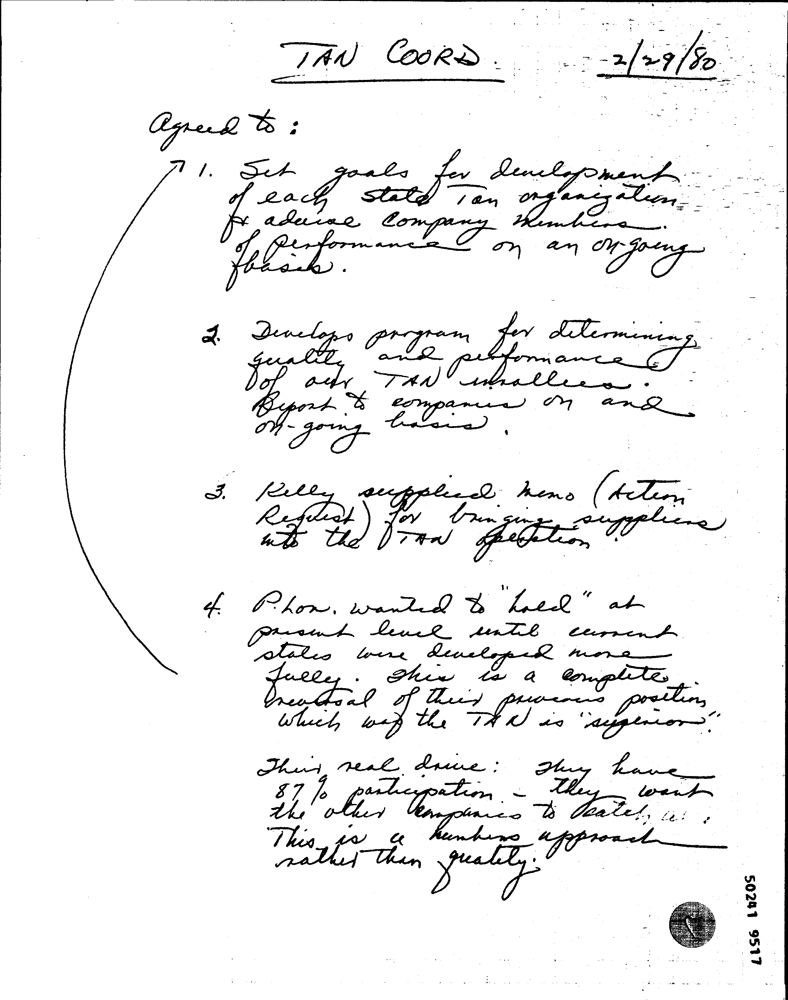 TAN COORD. 2/29/80
Agreed to:
1. Set goals for development
of each State Tan organization
& advise Company members
of performance on an on-going
basis.
2. Develops program for determining
quality and performance
of our TAN enrollees.
Report to companies on and
on-going basis.
3. Kelly supplied memo (Action
Request) for bringing suppliers
into the TAN operation.
4. P. Lor. wanted to "hold" at
present level until current
states were developed more
fully. This is a complete
reversal of their previous position
which was the TAN is "superior".
Their real drive: They have
87% participation - they want
the other companies to catch up.
This is a numbers approach
rather than quality.
50241 9517